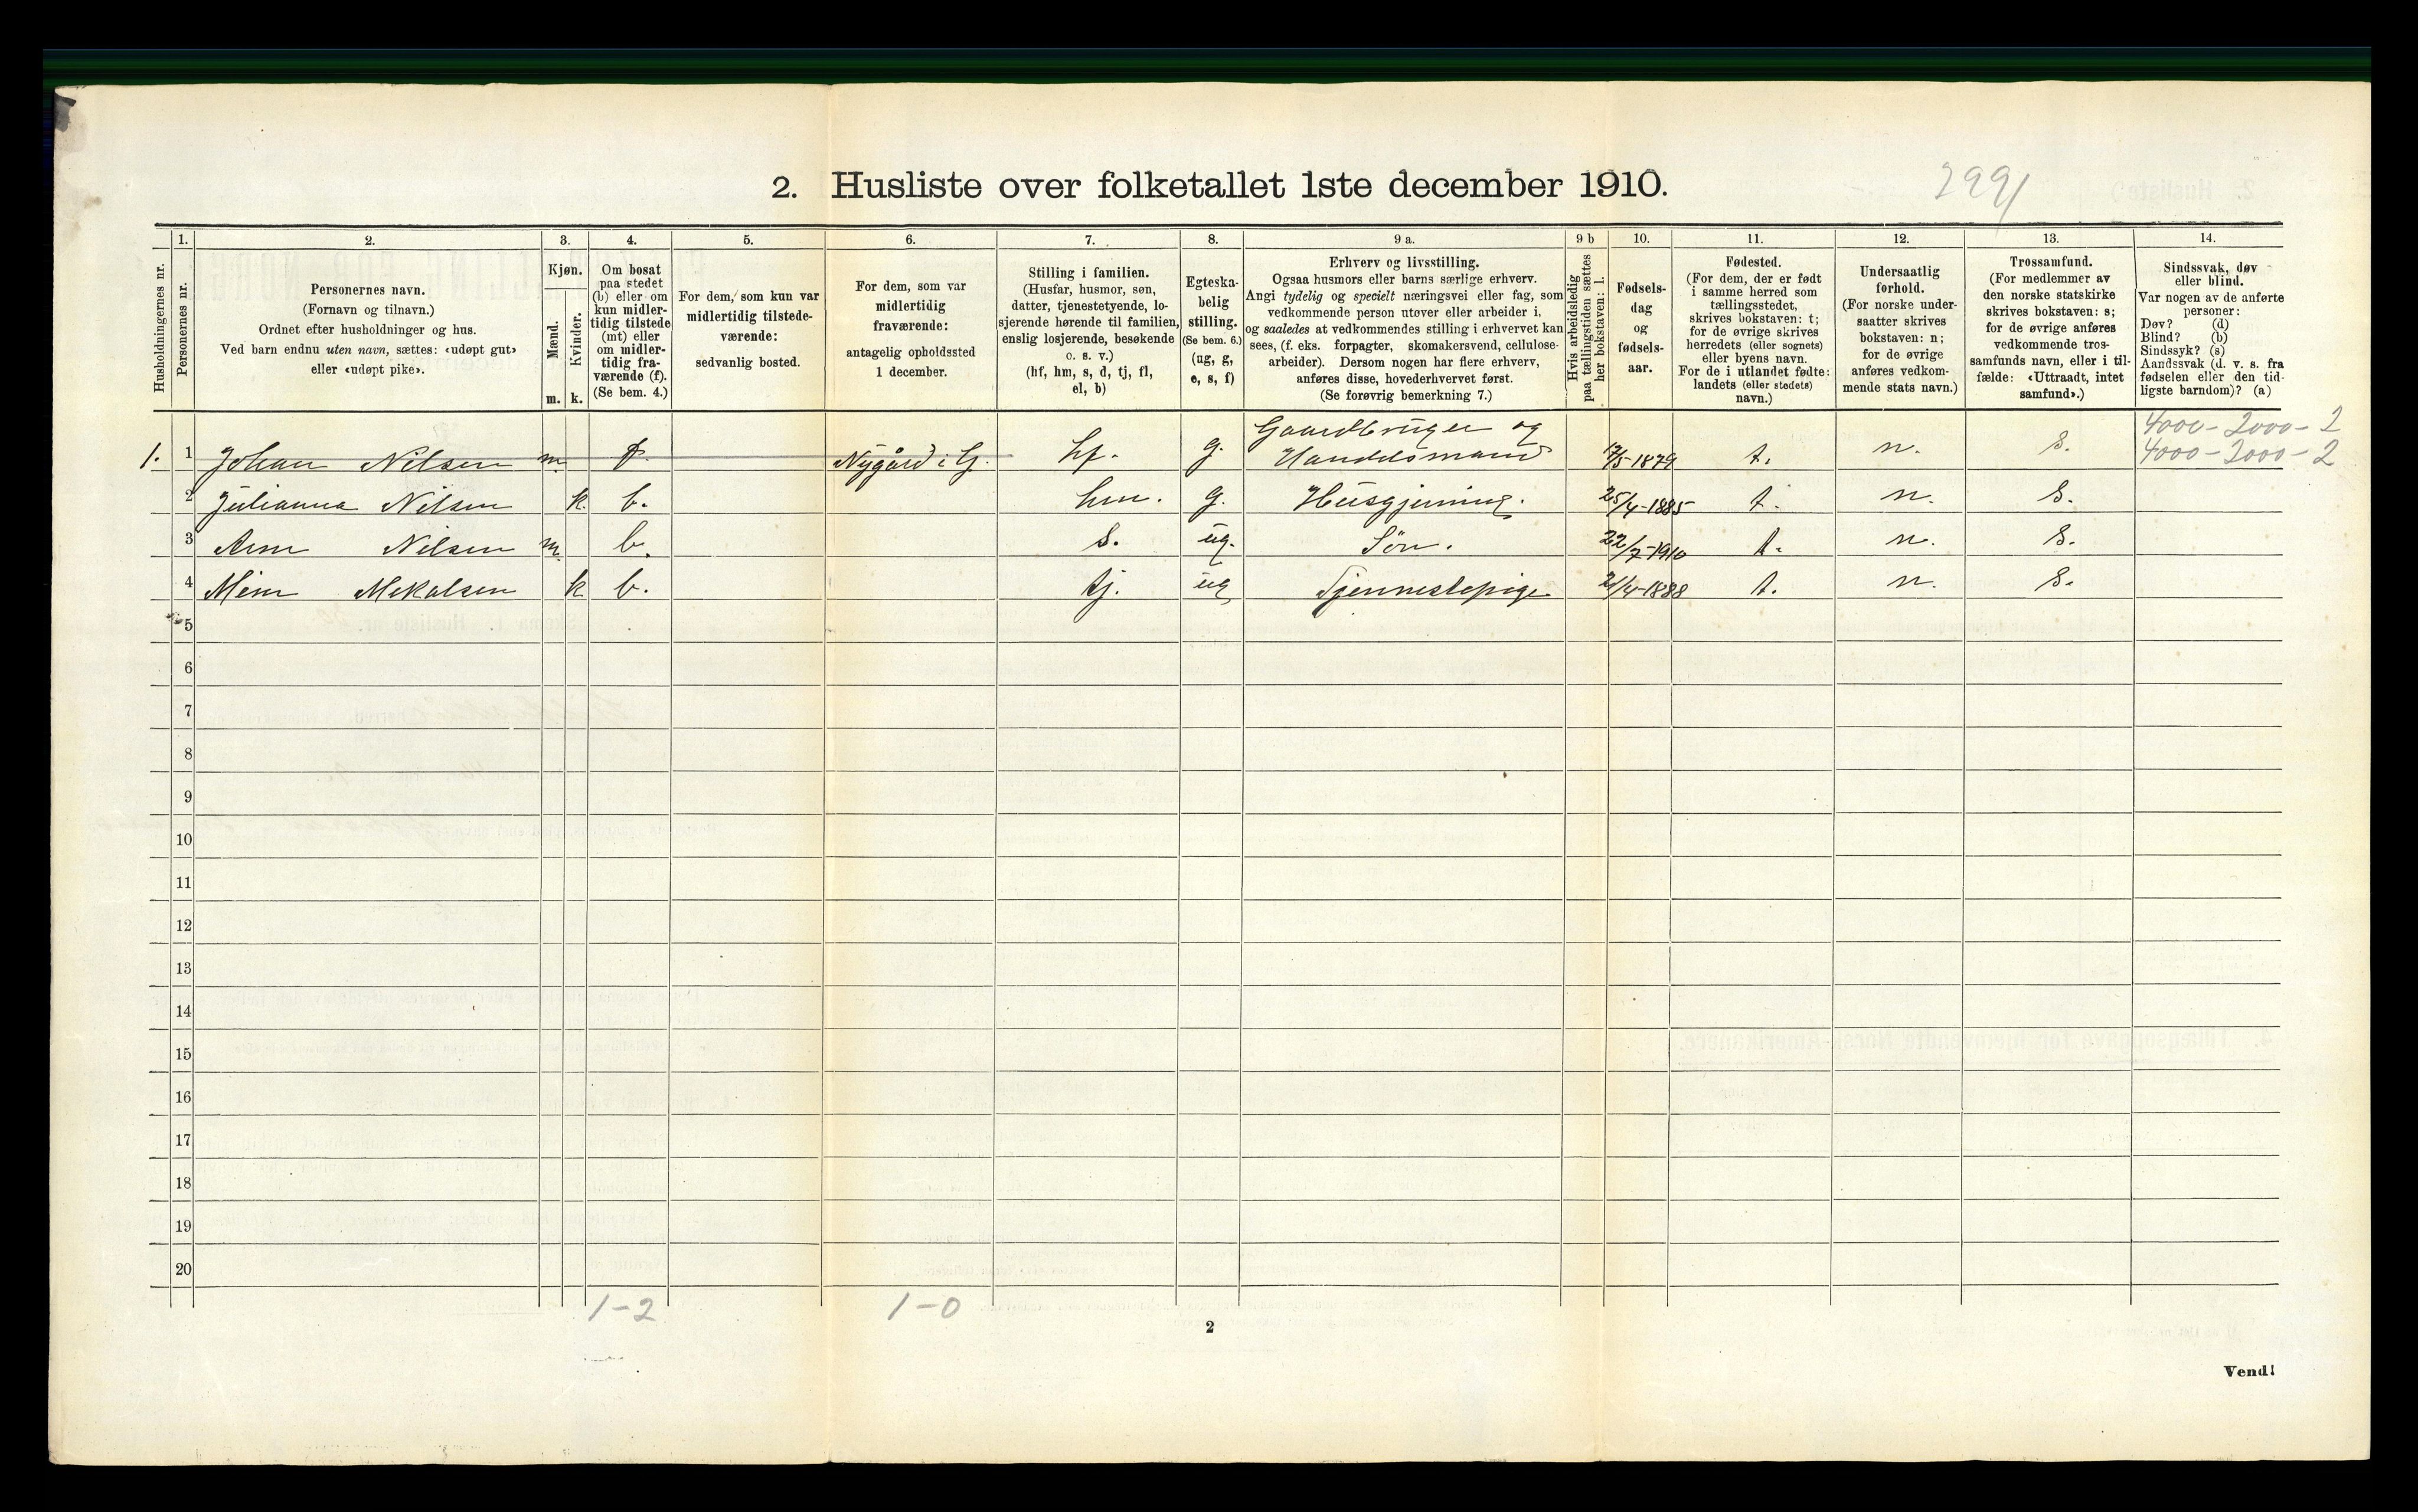 2. Husliste over folketallet 1ste december 1910.
2991
Husholdningernes nr.
1.
Personernes nr.
2.
Personernes navn.
(Fornavn og tilnavn.)
Ordnet efter husholdninger og hus.
Ved barn endnu uten navn, sættes: «udøpt gut»
eller «udøpt pike».
3.
Kjøn.
Mænd.
Kvinder.
m. k.
4.
Om bosat
paa stedet
(b) eller om
kun midler-
tidig tilstede
(mt) eller
om midler-
tidig fra-
værende (f).
(Se bem. 4.)
5.
For dem, som kun var
midlertidig tilstede-
værende:
sedvanlig bosted.
6.
For dem, som var
midlertidig
fraværende:
antagelig opholdssted
1 december.
7.
Stilling i familien.
(Husfar, husmor, søn,
datter, tjenestetyende, lo-
sjerende hørende til familien,
enslig losjerende, besøkende
o. s. v.)
(hf, hm, s, d, tj, fl,
el, b)
8.
Egteska-
belig
stilling.
(Se bem. 6.)
(ug, g,
e, s, f)
9 a.
Erhverv og livsstilling.
Ogsaa husmors eller barns særlige erhverv.
Angi tydelig og specielt næringsvei eller fag, som
vedkommende person utøver eller arbeider i,
og saaledes at vedkommendes stilling i erhvervet kan
sees, (f. eks. forpagter, skomakersvend, cellulose-
arbeider). Dersom nogen har flere erhverv,
anføres disse, hovederhvervet først.
(Se forøvrig bemerkning 7.)
9 b
Hvis arbeidsledig
paa tællingstiden sættes
her bokstaven: l.
10.
Fødsels-
dag
og
fødsels-
aar.
11.
Fødested.
(For dem, der er født
i samme herred som
tællingsstedet,
skrives bokstaven: t;
for de øvrige skrives
herredets (eller sognets)
eller byens navn.
For de i utlandet fødte:
landets (eller stedets)
navn.)
12.
Undersaatlig
forhold.
(For norske under-
saatter skrives
bokstaven: n;
for de øvrige
anføres vedkom-
mende stats navn.)
13.
Trossamfund.
(For medlemmer av
den norske statskirke
skrives bokstaven: s;
for de øvrige anføres
vedkommende tros-
samfunds navn, eller i til-
fælde: «Uttraadt, intet
samfund».)
14.
Sindssvak, døv
eller blind.
Var nogen av de anførte
personer:
Døv? (d)
Blind? (b)
Sindssyk? (s)
Aandssvak (d. v. s. fra
fødselen eller den tid-
ligste barndom)? (a)
1. 1 Johan Nilsen m f. Nygård i G. hf. g. Gaardbruger og Handelsmand 17/5-1879 t. n. s. 4000-2000-2
4000-2000-2
2 Julianna Nilsen k. b. hm. g. Husgjerning. 25/4-1885 t. n. s.
3 Arne Nilsen m b. s. ug. Søn. 22/7-1910 t. n. s.
4 Mina Mikalsen k b. tj. ug Tjennestepige 21/4-1888 t. n. s.
5
6
7
8
9
10
11
12
13
14
15
16
17
18
19
20
1-2 1-0
2
Vend!